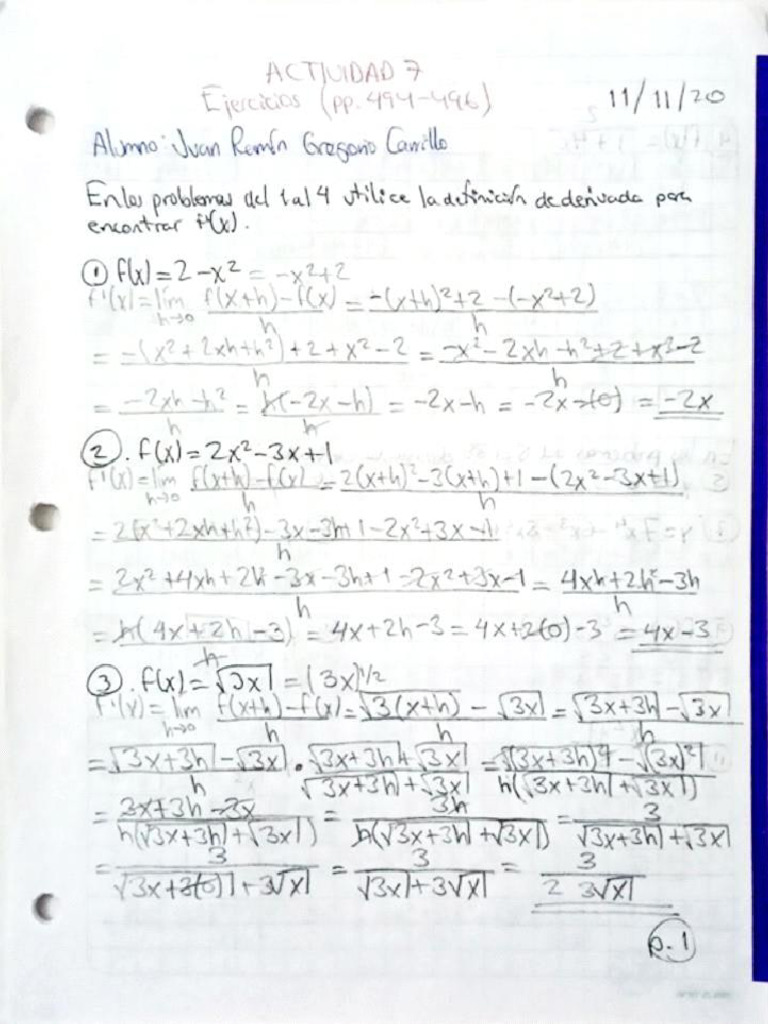 ACTIVIDAD 7
Ejercicios (pp. 494-496) 11/11/20
Alumno: Juan Ramón Gregorio Carrillo
En los problemas del 1 al 4 utilice la definición de derivada para
encontrar f'(x).
① f(x)=2-x² = -x²+2
f'(x)=lím h→0 f(x+h)-f(x)/h = -(x+h)²+2-(-x²+2)/h
= -(x²+2xh+h²)+2+x²-2/h = -x²-2xh-h²+2+x²-2/h
= -2xh-h²/h = h(-2x-h)/h = -2x-h = -2x-(0) = -2x
②. f(x)=2x²-3x+1
f'(x)=lím h→0 f(x+h)-f(x)/h = 2(x+h)²-3(x+h)+1-(2x²-3x+1)/h
= 2(x²+2xh+h²)-3x-3h+1-2x²+3x-1/h
= 2x²+4xh+2h²-3x-3h+1-2x²+3x-1/h = 4xh+2h²-3h/h
= h(4x+2h-3)/h = 4x+2h-3 = 4x+2(0)-3 = 4x-3
③. f(x)=√3x = (3x)^1/2
f'(x)=lím h→0 f(x+h)-f(x)/h = √3(x+h) - √3x/h = √3x+3h - √3x/h
= √3x+3h - √3x/h · √3x+3h + √3x/√3x+3h + √3x = √(3x+3h)² - √(3x)²/h(√3x+3h + √3x)
= 3x+3h-3x/h(√3x+3h + √3x) = 3h/h(√3x+3h + √3x) = 3/√3x+3h + √3x
= 3/√3x+3(0) + 3√x = 3/√3x + 3√x = 3/2 3√x
p. 1